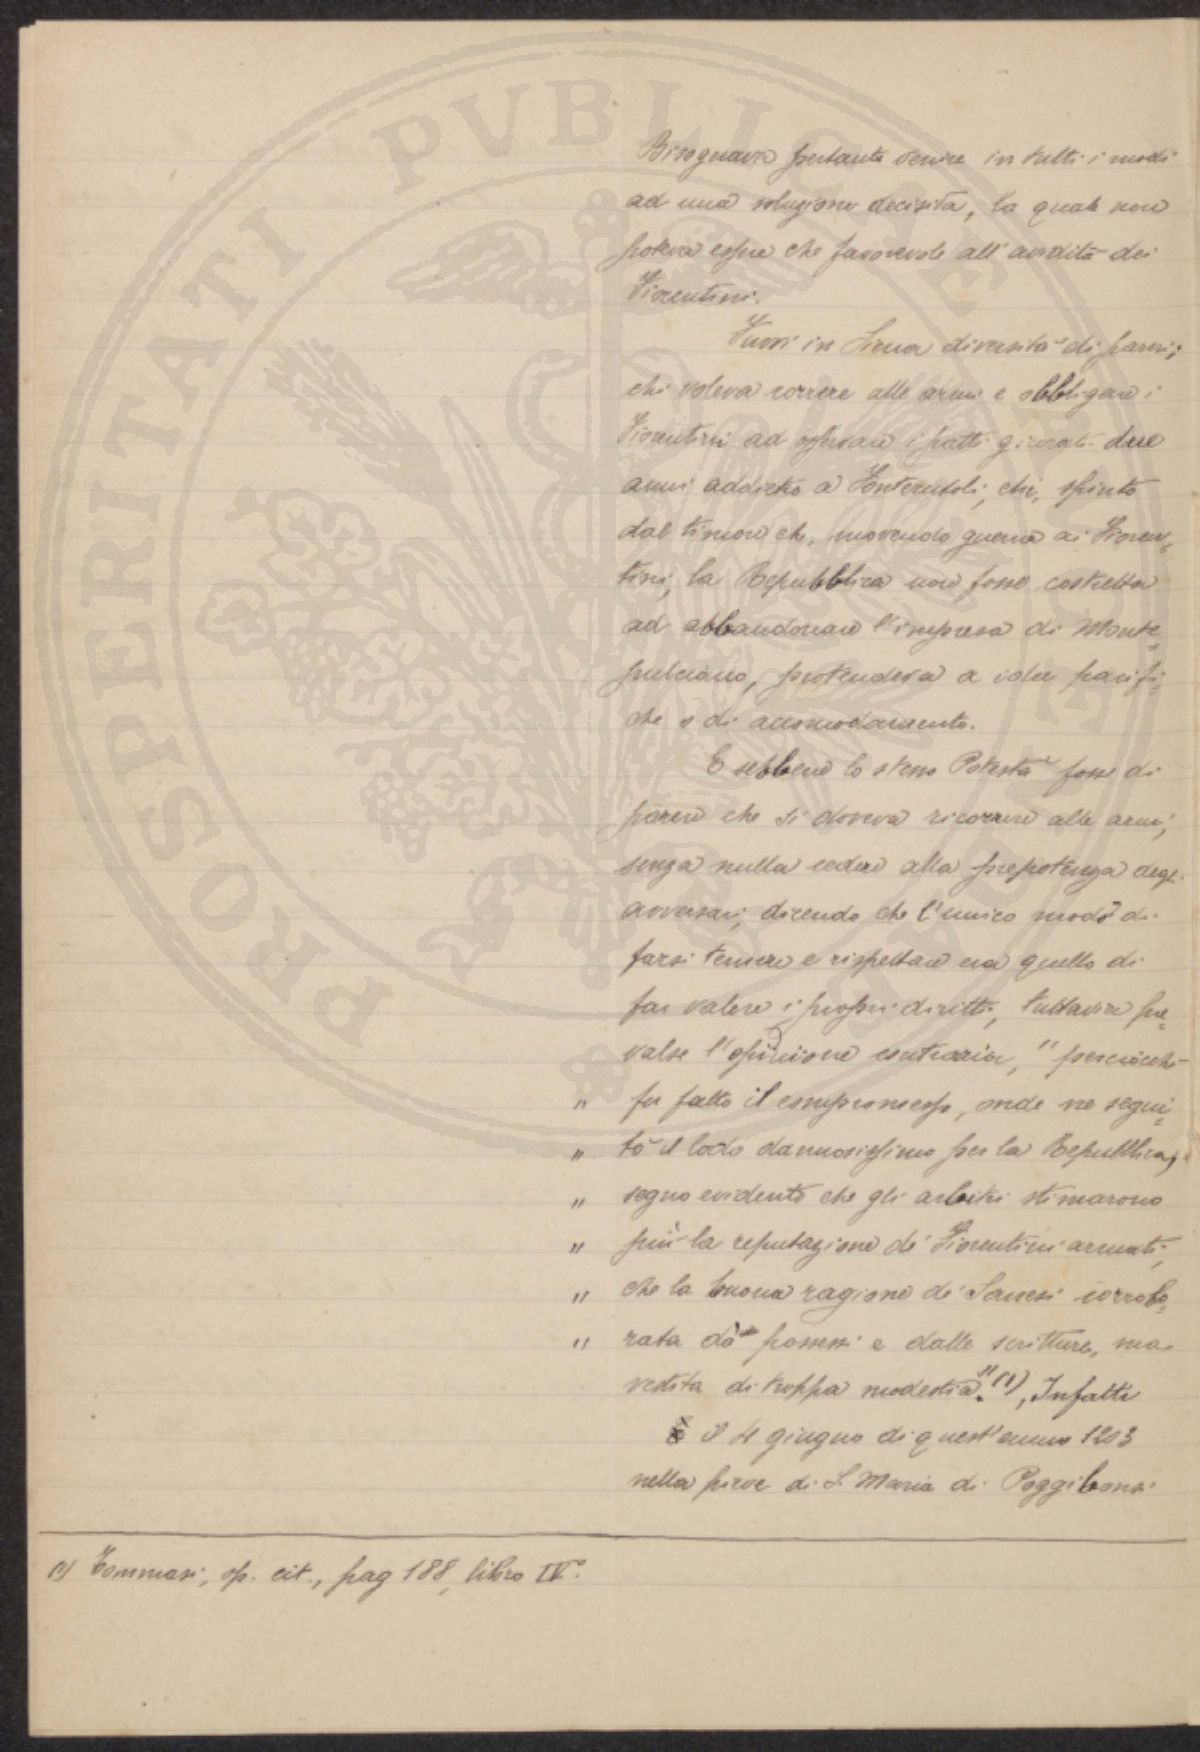 Bisognava pertanto venire in tutti i modi
ad una soluzione decisiva, la quale non
poteva essere che favorevole all'avidità dei
Fiorentini.
Furon in Siena diversità di pareri;
chi voleva correre alle armi e obbligare i
Fiorentini ad osservare i patti giurati due
anni addietro a Fonterutoli; chi, spinto
dal timore che, movendo guerra ai Fioren=
tini, la Repubblica non fosse costretta
ad abbandonare l'impresa di Monte=
pulciano, protendeva a idee pacifi=
che o di accomodamento.
E sebbene lo stesso Potestà fosse di
parere che si doveva ricorrere alle armi,
senza nulla cedere alla prepotenza degli
avversari, dicendo che l'unico modo di
farsi temere e rispettare era quello di
far valere i propri diritti, tuttavia pre=
valse l'opinione contraria, "perciocchè
" fu fatto il compromesso, onde ne segui=
" tò il lodo dannosissimo per la Repubblica,
" segno evidente che gli arbitri stimarono
" più la reputazione de' Fiorentini armati,
" che la buona ragione de' Sanesi corrobo=
" rata da' possessi e dalle scritture, ma
vestita di troppa modestia."(1) Infatti
il 4 giugno di quest'anno 1203
nella pieve di S. Maria di Poggibonsi
(1) Tommasi, op. cit., pag 188, libro IV°.
PROSPERITATI PVBLICAE